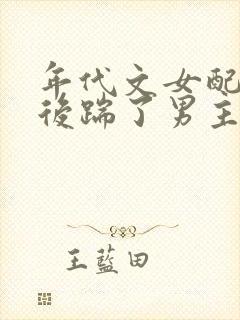 年代文女配
後踹了男主
王藍田